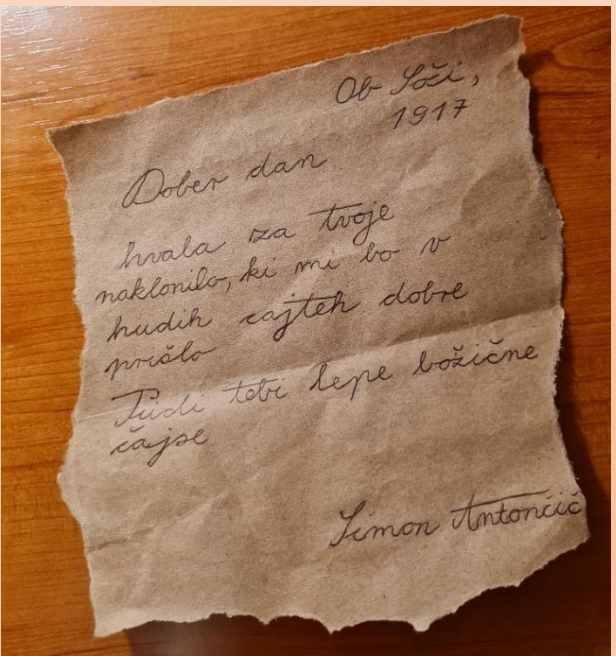 Ob Soči,
1917
Dober dan
hvala za tvoje
naklonilo, ki mi bo v
hudih cajteh dobre
prišlo
Tudi tebi lepe božične
čajse
Simon Antončič